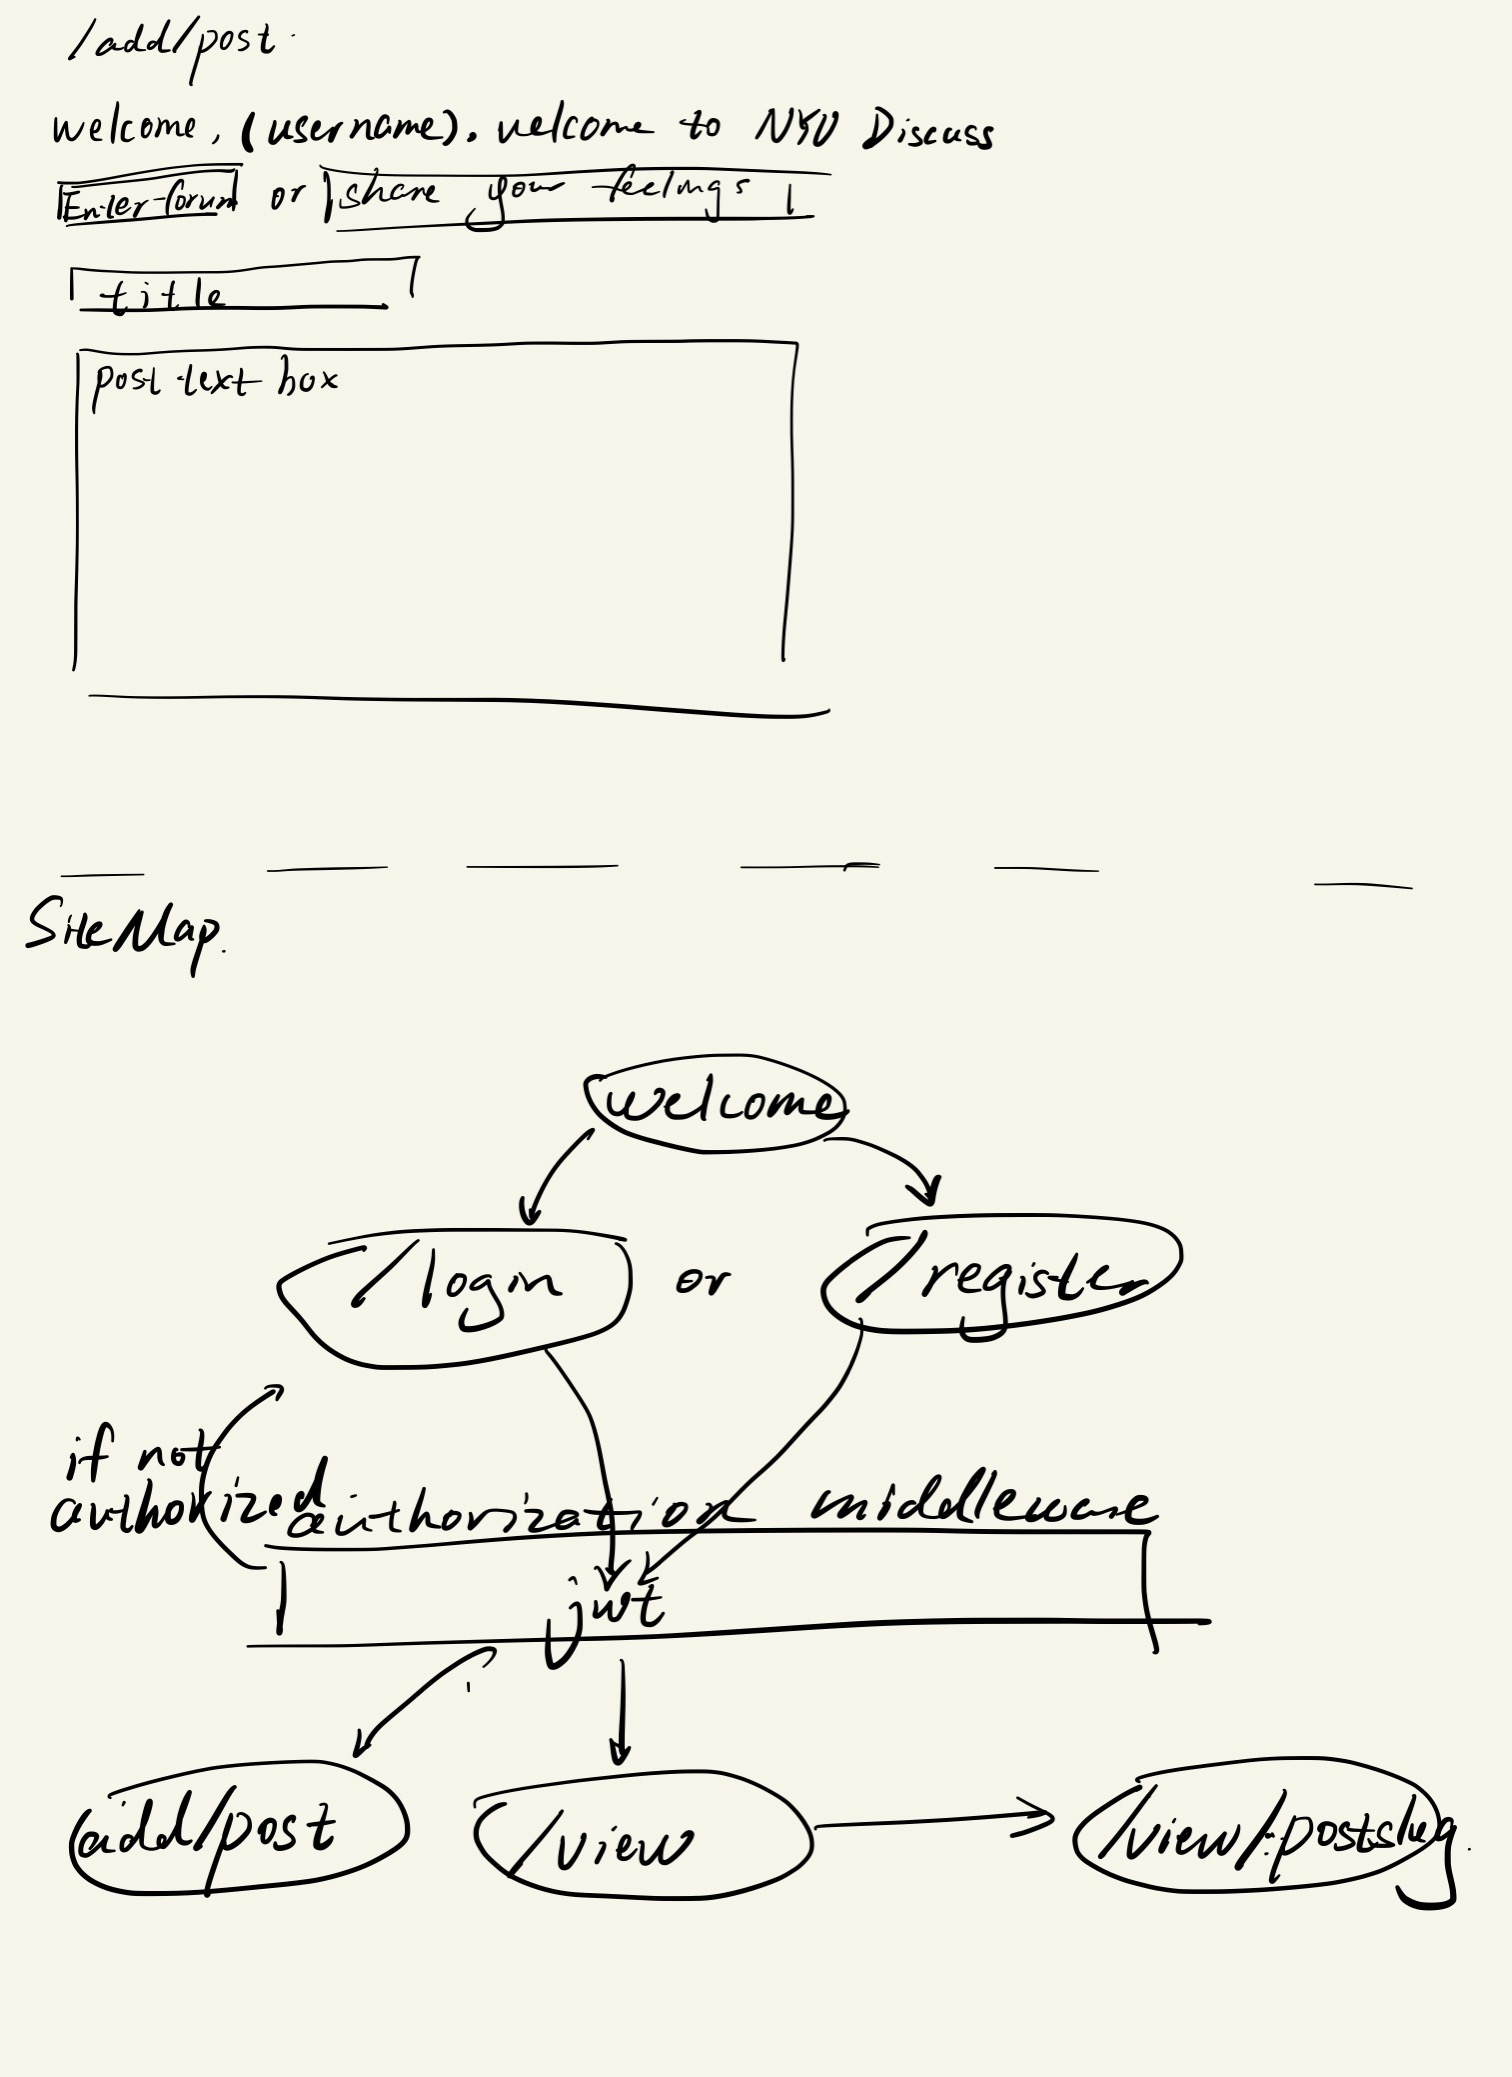 /add/post
welcome, (username). welcome to NYU Discuss
Enter forum or share your feelings
title
post text box
SiteMap.
welcome
/login or /register
if not
authorized
authorization middleware
jwt
add/post /view /view/:postslug